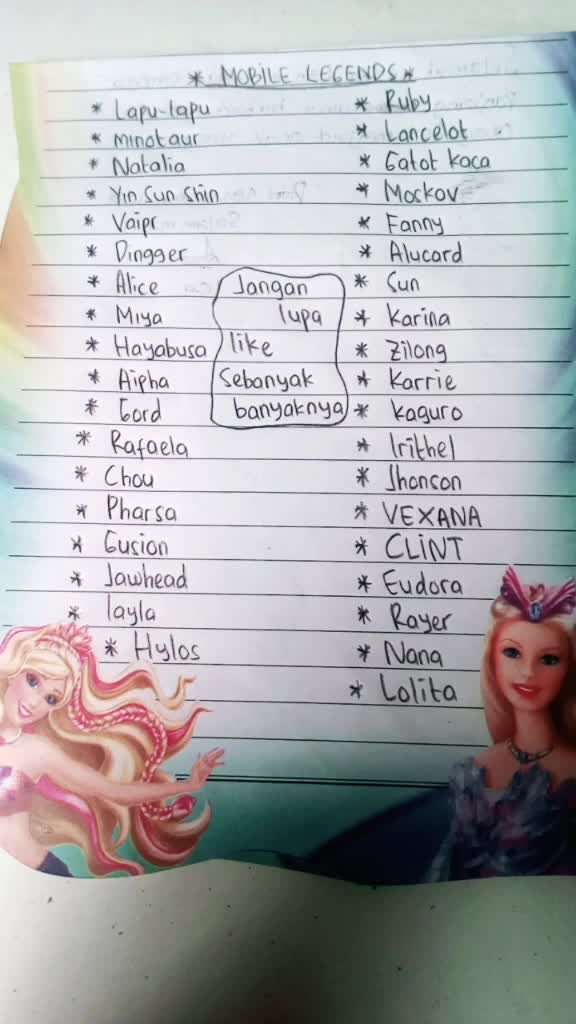 * MOBILE LEGENDS *
* Lapu-lapu
* minotaur
* Natalia
* Yin Sun Shin
* Vaipr
* Dingger
* Alice
* Miya
* Hayabusa
* Aipha
* Gord
* Rafaela
* Chou
* Pharsa
* Gusion
* Jawhead
* layla
* Hylos
Jangan
lupa
like
Sebanyak
banyaknya
* Ruby
* Lancelot
* Gatot kaca
* Moskov
* Fanny
* Alucard
* Sun
* Karina
* Zilong
* Karrie
* Kaguro
* Irithel
* Jhonson
* VEXANA
* CLiNT
* Eudora
* Rayer
* Nana
* Lolita